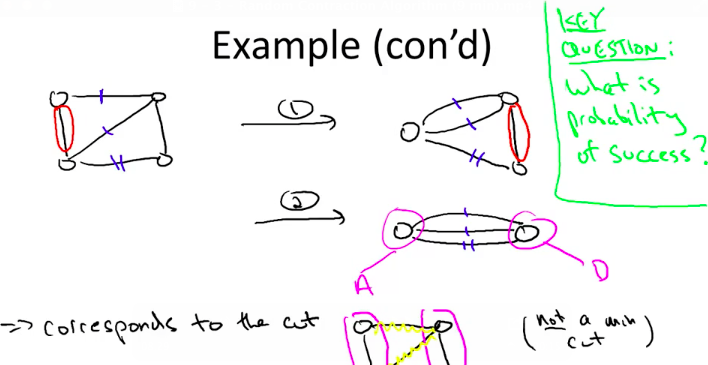 Example (con'd)
KEY
QUESTION:
What is
probability
of success?
①
②
A
D
=> corresponds to the cut
(not a min
cut)